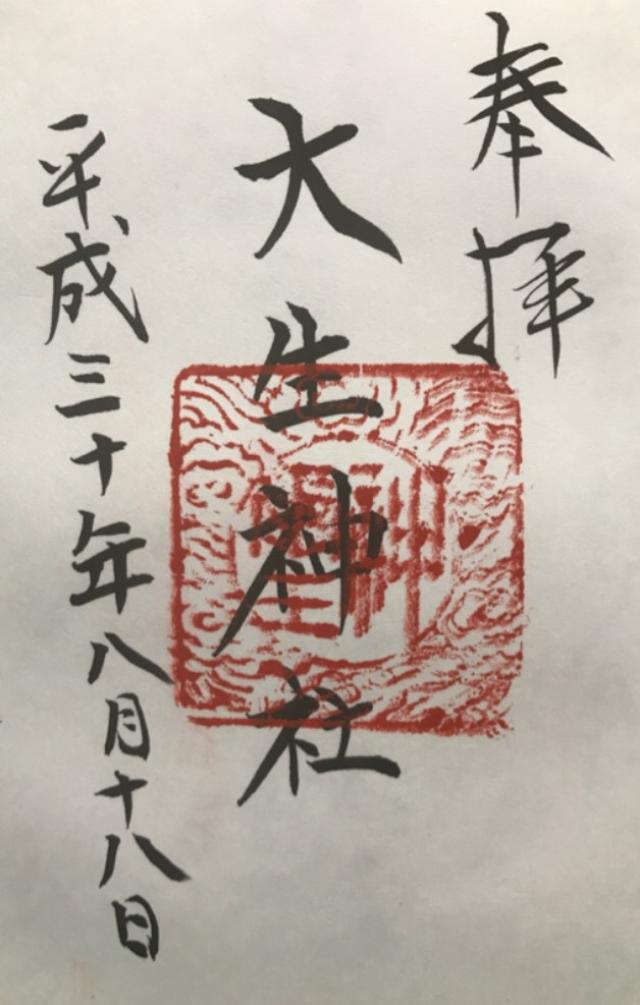 奉拝
大生神社
平成三十年八月十八日